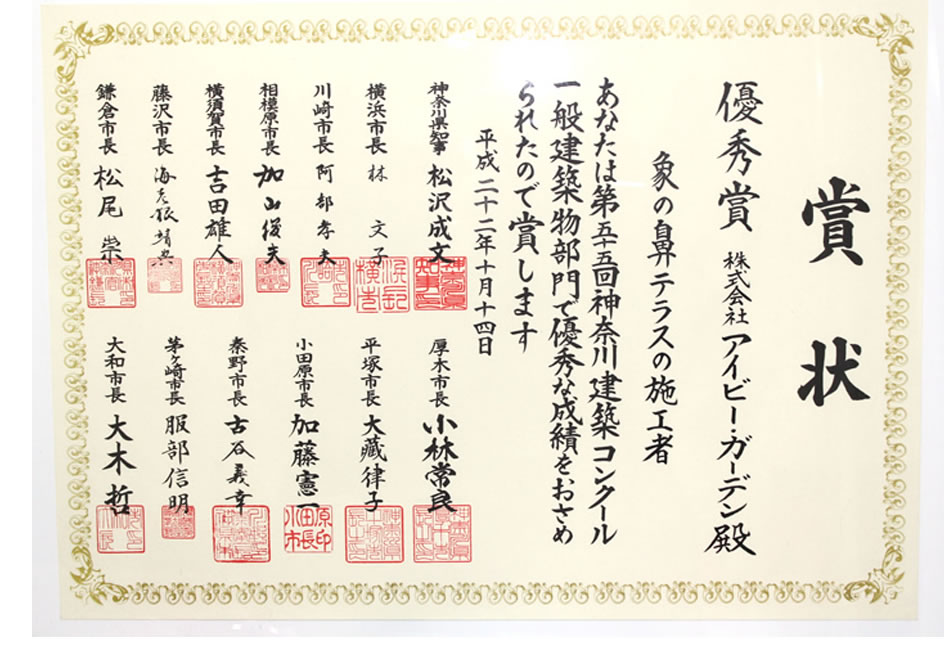 賞状
優秀賞 株式会社アイビー・ガーデン殿
象の鼻テラスの施工者
あなたは第五十五回神奈川建築コンクール
一般建築物部門で優秀な成績をおさめ
られたので賞します
平成二十二年十月十四日
神奈川県知事 松沢成文
横浜市長 林 文子
川崎市長 阿部孝夫
相模原市長 加山俊夫
横須賀市長 吉田雄人
藤沢市長 海老根靖典
鎌倉市長 松尾 崇
厚木市長 小林常良
平塚市長 大藏律子
小田原市長 加藤憲一
秦野市長 古谷義幸
茅ヶ崎市長 服部信明
大和市長 大木哲